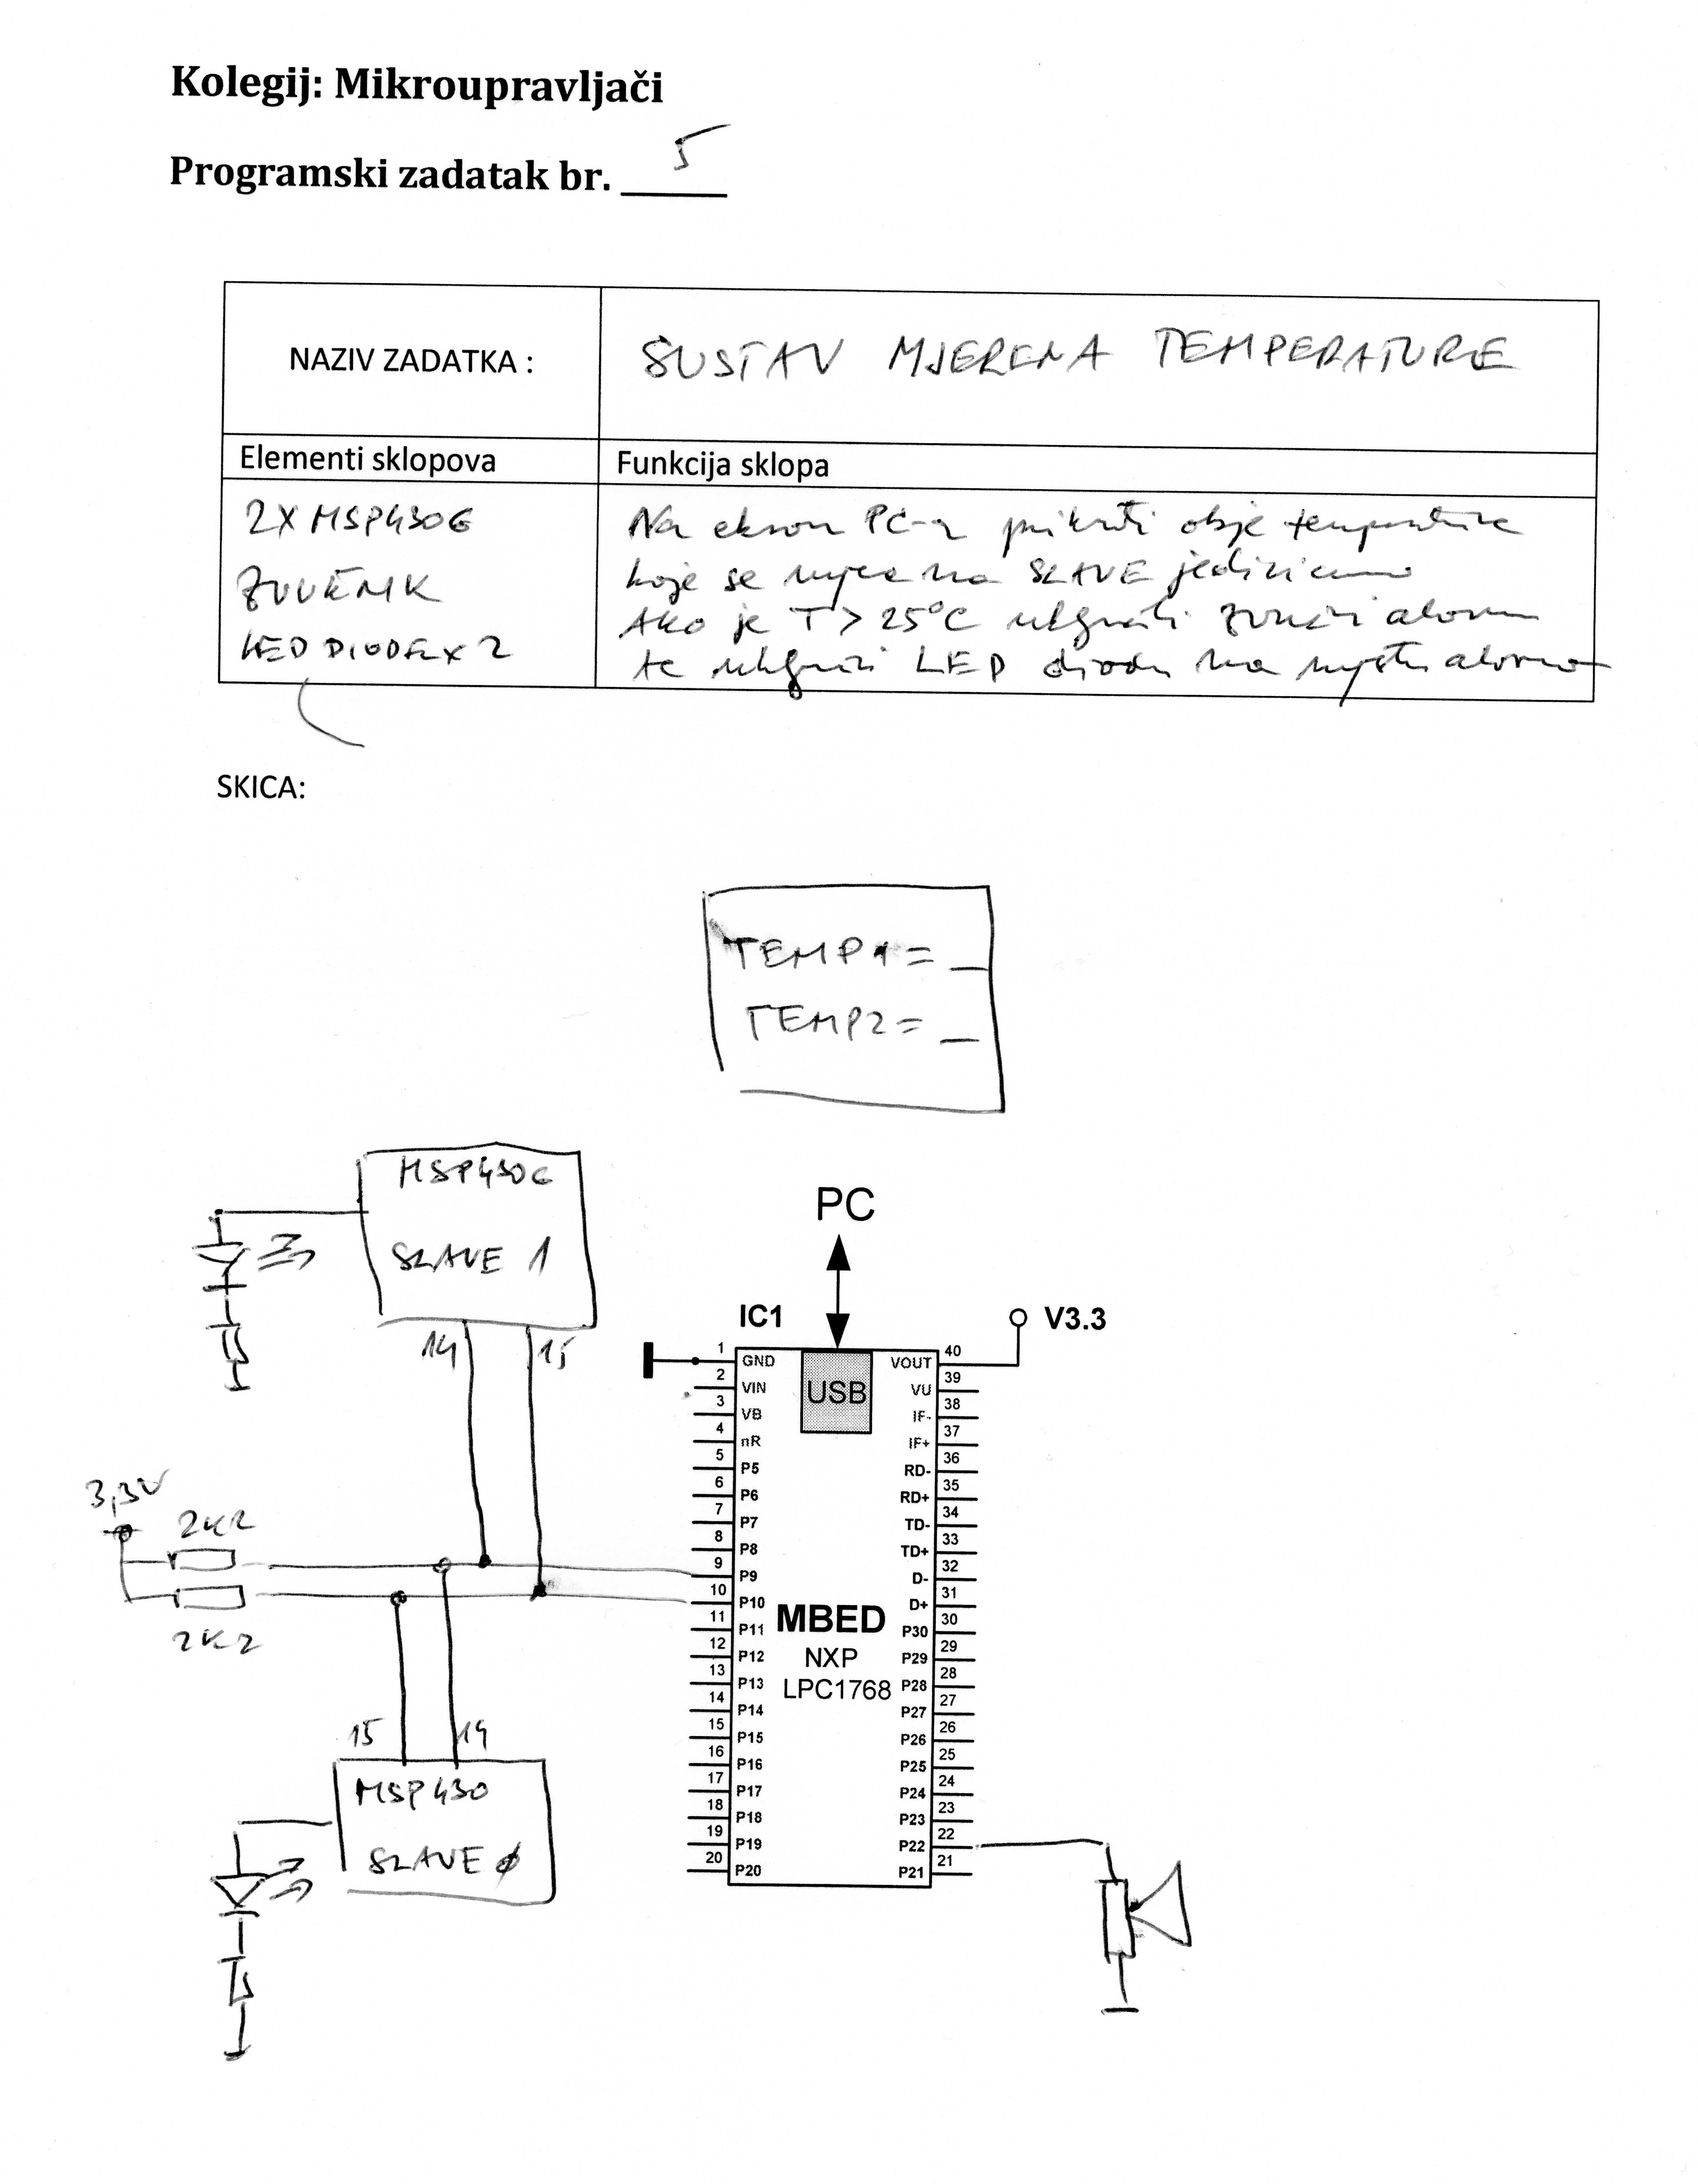 Kolegij: Mikroupravljači
Programski zadatak br. 5
NAZIV ZADATKA :
SUSTAV MJERENA TEMPERATURE
Elementi sklopova
Funkcija sklopa
2X MSP430G
ZVUČNIK
LED DIODE x 2
Na ekran PC-a prikazati obje temperature
koje se mjere na SLAVE jedinicama
Ako je T > 25°C uključiti zvučni alarm
te uključi LED diodu na mjestu alarma
SKICA:
TEMP1 = _
TEMP2 = _
MSP430G
SLAVE 1
14 15
PC
IC1
V3.3
USB
1 GND
2 VIN
3 VB
4 nR
5 P5
6 P6
7 P7
8 P8
9 P9
10 P10
11 P11
12 P12
13 P13
14 P14
15 P15
16 P16
17 P17
18 P18
19 P19
20 P20
40 VOUT
39 VU
38 IF-
37 IF+
36 RD-
35 RD+
34 TD-
33 TD+
32 D-
31 D+
30 P30
29 P29
28 P28
27 P27
26 P26
25 P25
24 P24
23 P23
22 P22
21 P21
MBED
NXP
LPC1768
3,3V
2K2
2K2
15 14
MSP430
SLAVE 0